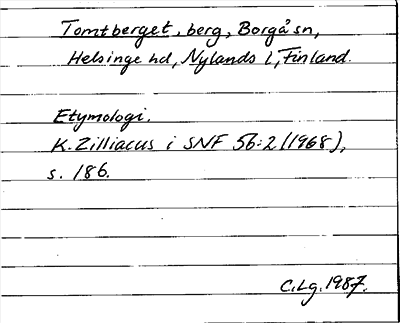 Tomtberget, berg, Borgå sn,
Helsinge hd, Nylands l, Finland.
Etymologi.
K. Zilliacus i SNF 56:2 (1968),
s. 186.
C.Lg. 1987.